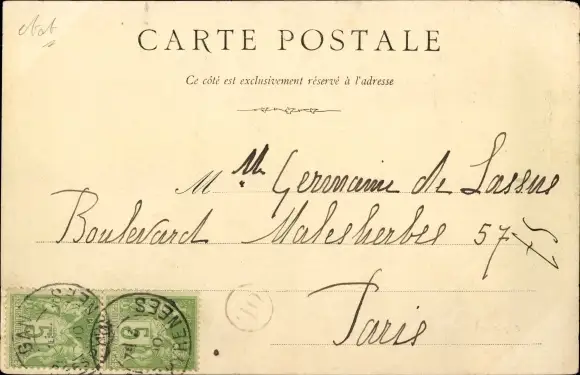 CARTE POSTALE
Ce côté est exclusivement réservé à l'adresse
Mlle Germaine de Lassus
Boulevard Malesherbes 57
Paris
5
5